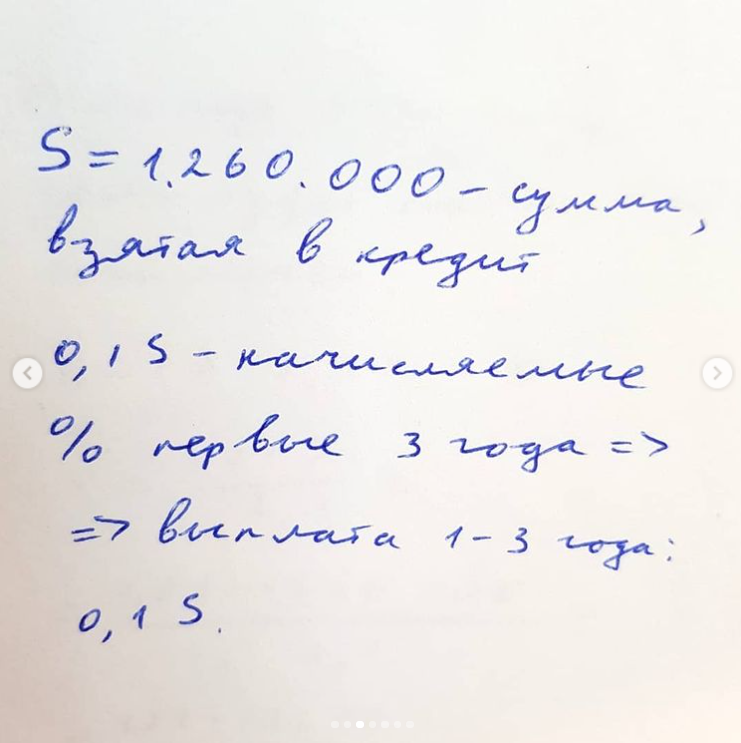 S = 1.260.000 – сумма,
взятая в кредит
0,1 S – начисляемые
% первые 3 года =>
=> выплата 1-3 года:
0,1 S.